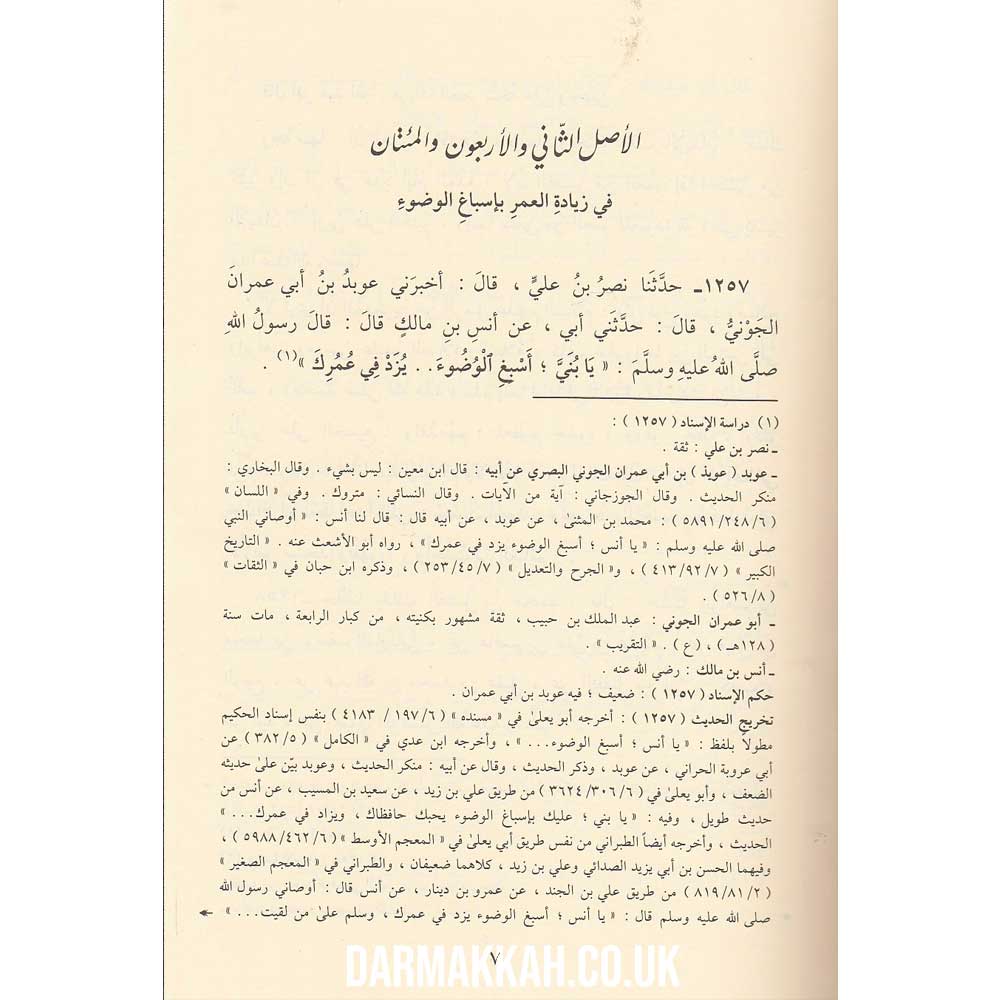 الأصل الثّاني والأربعون والمئتان
في زيادةِ العمرِ بإسباغِ الوضوءِ
١٢٥٧ـ حدَّثَنا نصرُ بنُ عليٍّ ، قالَ : أخبرَني عوبدُ بنُ أبي عمرانَ
الجَوْنيُّ ، قالَ : حدَّثَني أبي ، عن أنسِ بنِ مالكٍ قالَ : قالَ رسولُ اللهِ
صلَّى اللهُ عليهِ وسلَّمَ : « يَا بُنَيَّ ؛ أَسْبِغِ ٱلْوُضُوءَ . . يُزَدْ فِي عُمُرِكَ »(١) .
(١) دراسة الإسناد ( ١٢٥٧ ) :
ـ نصر بن علي : ثقة .
ـ عوبد ( عويذ ) بن أبي عمران الجوني البصري عن أبيه : قال ابن معين : ليس بشيء . وقال البخاري :
منكر الحديث . وقال الجوزجاني : آية من الآيات . وقال النسائي : متروك . وفي « اللسان »
( ٥٨٩١/٢٤٨/٦ ) : محمد بن المثنىٰ ، عن عوبد ، عن أبيه قال : قال لنا أنس : « أوصاني النبي
صلى الله عليه وسلم : « يا أنس ؛ أسبغ الوضوء يزد في عمرك » ، رواه أبو الأشعث عنه . « التاريخ
الكبير » ( ٤١٣/٩٢/٧ ) ، و« الجرح والتعديل » ( ٢٥٣/٤٥/٧ ) ، وذكره ابن حبان في « الثقات »
( ٥٢٦/٨ ) .
ـ أبو عمران الجوني : عبد الملك بن حبيب ، ثقة مشهور بكنيته ، من كبار الرابعة ، مات سنة
( ١٢٨هـ ) ، ( ع ) . « التقريب » .
ـ أنس بن مالك : رضي الله عنه .
حكم الإسناد ( ١٢٥٧ ) : ضعيف ؛ فيه عوبد بن أبي عمران .
تخريج الحديث ( ١٢٥٧ ) : أخرجه أبو يعلىٰ في « مسنده » ( ١٩٧/٦ / ٤١٨٣ ) بنفس إسناد الحكيم
مطولاً بلفظ : « يا أنس ؛ أسبغ الوضوء... » ، وأخرجه ابن عدي في « الكامل » ( ٣٨٢/٥ ) عن
أبي عروبة الحراني ، عن عوبد ، وذكر الحديث ، وقال عن أبيه : منكر الحديث ، وعوبد بيّن علىٰ حديثه
الضعف ، وأبو يعلىٰ في ( ٣٦٢٤/٣٠٦/٦ ) من طريق علي بن زيد ، عن سعيد بن المسيب ، عن أنس من
حديث طويل ، وفيه : « يا بني ؛ عليك بإسباغ الوضوء يحبك حافظاك ، ويزاد في عمرك... »
الحديث ، وأخرجه أيضاً الطبراني من نفس طريق أبي يعلىٰ في « المعجم الأوسط » ( ٥٩٨٨/٤٦٢/٦ ) ،
وفيهما الحسن بن أبي يزيد الصدائي وعلي بن زيد ، كلاهما ضعيفان ، والطبراني في « المعجم الصغير »
( ٨١٩/٨١/٢ ) من طريق علي بن الجند ، عن عمرو بن دينار ، عن أنس قال : أوصاني رسول الله
صلى الله عليه وسلم قال : « يا أنس ؛ أسبغ الوضوء يزد في عمرك ، وسلم علىٰ من لقيت... »
٧
DARMAKKAH.CO.UK